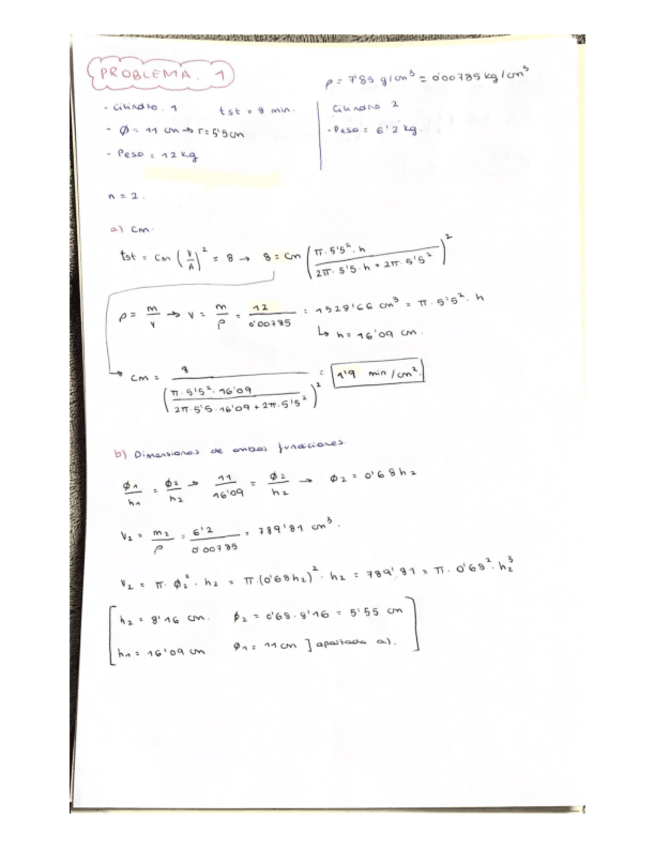 PROBLEMA. 1
ρ = 7'85 g/cm³ = 0'00785 kg/cm³
- Cilindro. 1 tst = 8 min.
- Ø = 11 cm → r = 5'5 cm
- Peso = 12 kg
Cilindro 2
- Peso = 6'2 kg.
n = 2.
a) Cm.
tst = Cm (V/A)² = 8 → 8 = Cm (π·5'5²·h / 2π·5'5·h + 2π·5'5²)²
ρ = m/V → V = m/ρ = 12/0'00785 = 1528'66 cm³ = π·5'5²·h
↳ h = 16'09 cm.
Cm = 8 / (π·5'5²·16'09 / 2π·5'5·16'09 + 2π·5'5²)² = 1'9 min/cm².
b) Dimensiones de ambas fundiciones.
Ø1/h1 = Ø2/h2 → 11/16'09 = Ø2/h2 → Ø2 = 0'68h2
V2 = m2/ρ = 6'2/0'00785 = 789'81 cm³.
V2 = π·Ø2²·h2 = π·(0'68h2)²·h2 = 789'81 = π·0'68²·h2³
h2 = 8'16 cm. Ø2 = 0'68·8'16 = 5'55 cm
h1 = 16'09 cm Ø1 = 11 cm ] apartado a).